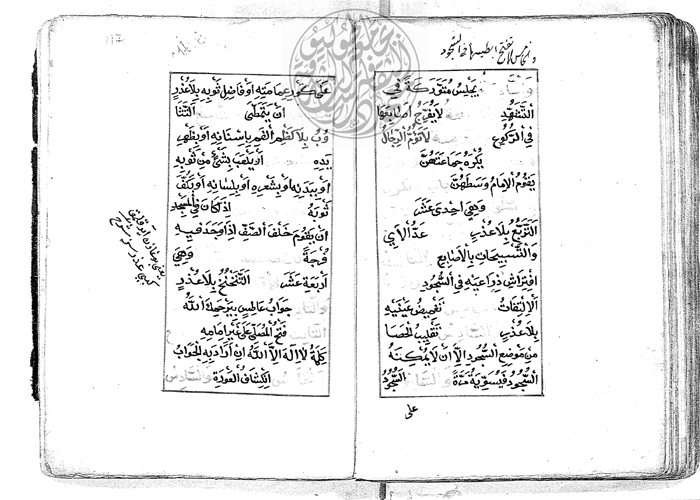 تجلس متوركة في
التشهد لا تفرج اصابعها
في الركوع لا تؤم الرجال
يكره جماعتهن
يقوم الامام وسطهن
وهي احدى عشر
التربع بلا عذر عد الآي
والتسبيحات بالاصابع
افتراش ذراعيه في السجود
الالتفات تغميض عينيه
بلا عذر تقليب الحصا
من موضع السجود الا ان لا يمكنه
السجود فيسويه مرة السجود
على
على كور عمامته او فاضل ثوبه بلا عذر
ان يتمطى التثا
وب بلا كظم الفم باسنانه او بظهر
يده او يلعب بشئ من ثوبه
او ببدنه او بشعره او بلسانه او بكف
ثوبه اذا كان في المسجد
ان يقوم خلف الصف اذا وجد فيه
فرجة وهي
اربعة عشر التنحنح بلا عذر
جواب عاطس بيرحمك الله
فتح المصلي على غير امامه
كلمة لا اله الا الله ان اراد به الجواب
انكشاف العورة